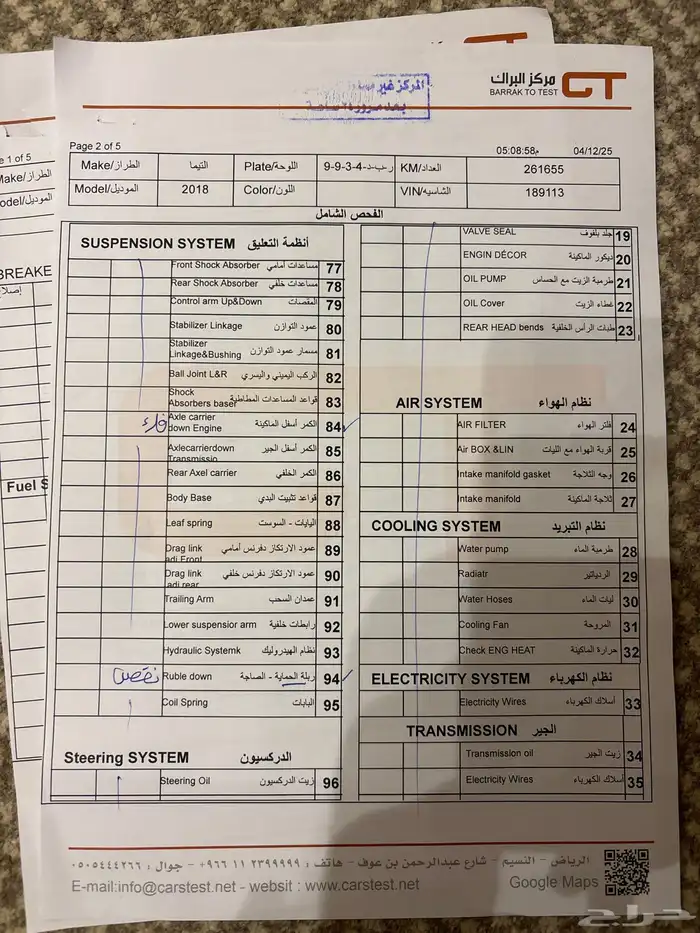 مركز البراك
BARRAK TO TEST
المركز غير
بعد مرور ٢٤ ساعة
Page 2 of 5
05:08:58م 04/12/25
Make/الطراز التيما Plate/اللوحة ر-ب-د-4-3-9-9 KM/العداد 261655
Model/الموديل 2018 Color/اللون VIN/الشاسيه 189113
الفحص الشامل
SUSPENSION SYSTEM أنظمة التعليق
Front Shock Absorber مساعدات أمامي 77
Rear Shock Absorber مساعدات خلفي 78
Control arm Up&Down المقصات 79
Stabilizer Linkage عمود التوازن 80
Stabilizer
Linkage&Bushing مسمار عمود التوازن 81
Ball Joint L&R الركب اليميني واليسري 82
Shock
Absorbers baser قواعد المساعدات المطاطية 83
Axle carrier
down Engine الكمر أسفل الماكينة 84
Axlecarrierdown
Transmissio الكمر أسفل الجير 85
Rear Axel carrier الكمر الخلفي 86
Body Base قواعد تثبيت البدي 87
Leaf spring اليايات - السوست 88
Drag link
adj Front عمود الارتكاز دفرنس أمامي 89
Drag link
adj rear عمود الارتكاز دفرنس خلفي 90
Trailing Arm عمدان السحب 91
Lower suspensior arm رابطات خلفية 92
Hydraulic Systemk نظام الهيدروليك 93
نقص Ruble down ربلة الحماية - الصاجة 94
Coil Spring اليايات 95
Steering SYSTEM الدركسيون
Steering Oil زيت الدركسيون 96
VALVE SEAL جلد بلفوف 19
ENGIN DÉCOR ديكور الماكينة 20
OIL PUMP طرمبة الزيت مع الحساس 21
OIL Cover غطاء الزيت 22
REAR HEAD bends طبات الرأس الخلفية 23
AIR SYSTEM نظام الهواء
AIR FILTER فلتر الهواء 24
Air BOX &LIN قربة الهواء مع الليات 25
Intake manifold gasket وجه الثلاجة 26
Intake manifold ثلاجة الماكينة 27
COOLING SYSTEM نظام التبريد
Water pump طرمبة الماء 28
Radiatr الردياتير 29
Water Hoses ليات الماء 30
Cooling Fan المروحة 31
Check ENG HEAT حرارة الماكينة 32
ELECTRICITY SYSTEM نظام الكهرباء
Electricity Wires أسلاك الكهرباء 33
TRANSMISSION الجير
Transmission oil زيت الجير 34
Electricity Wires أسلاك الكهرباء 35
الرياض - النسيم - شارع عبدالرحمن بن عوف - هاتف : ٢٣٩٩٩٩٩ ١١ ٩٦٦+ - جوال : ٠٥٠٥٤٤٤٢٦٦
E-mail:info@carstest.net - websit : www.carstest.net
Google Maps
حراج
e 1 of 5
Make/الطراز
odel/الموديل
BREAKE
Fuel S